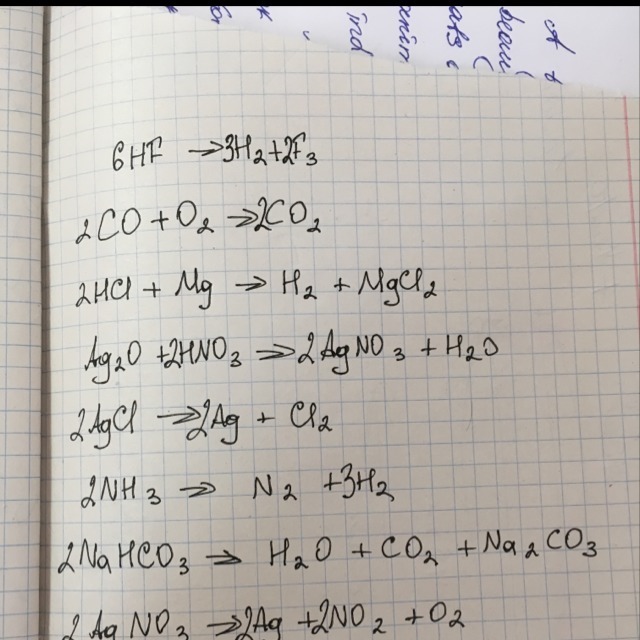 6HF → 3H₂ + 2F₃
2CO + O₂ → 2CO₂
2HCl + Mg → H₂ + MgCl₂
Ag₂O + 2HNO₃ → 2AgNO₃ + H₂O
2AgCl → 2Ag + Cl₂
2NH₃ → N₂ + 3H₂
2NaHCO₃ → H₂O + CO₂ + Na₂CO₃
2AgNO₃ → 2Ag + 2NO₂ + O₂